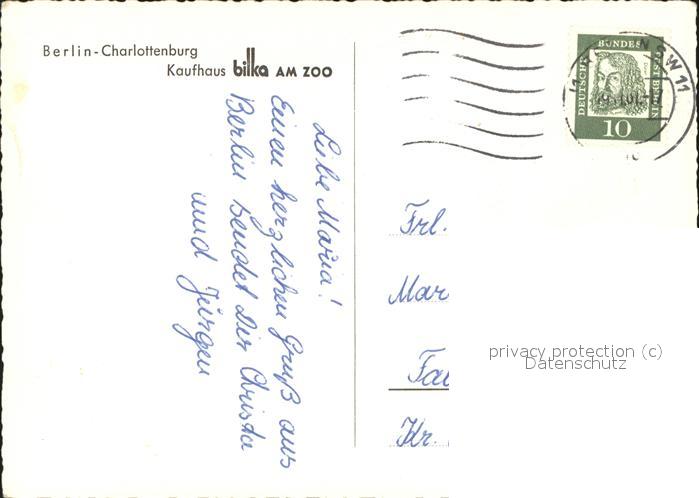 Berlin-Charlottenburg
Kaufhaus bilka AM ZOO
Liebe Maria!
Einen herzlichen Gruß aus
Berlin sendet Dir Christa
und Jürgen
DEUTSCHE BUNDESPOST BERLIN
10
SW 11
Frl.
Mar
Fau
Kr.
privacy protection (c)
Datenschutz